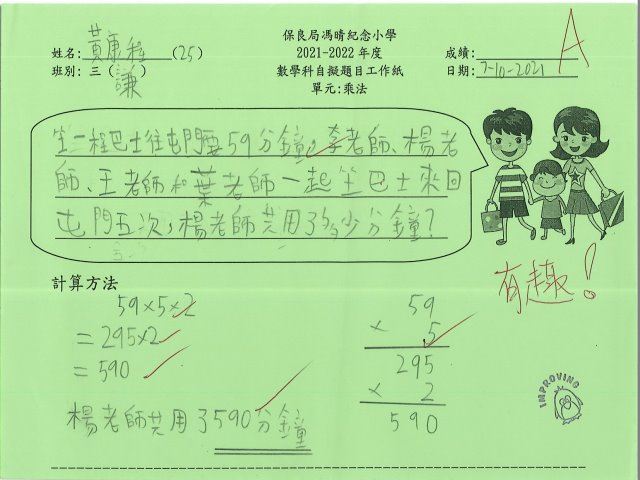 保良局馮晴紀念小學
姓名: 黃康程 (25) 2021-2022年度 成績: A
班別:三(謙) 數學科自擬題目工作紙 日期: 7-10-2021
單元:乘法
坐一程巴士往屯門要59分鐘,李老師、楊老
師、王老師和葉老師一起坐巴士來回
屯門五次,楊老師共用了多少分鐘?
有趣!
計算方法
59×5×2
=295×2
=590
楊老師共用了590分鐘
59
× 5
295
× 2
590
IMPROVING